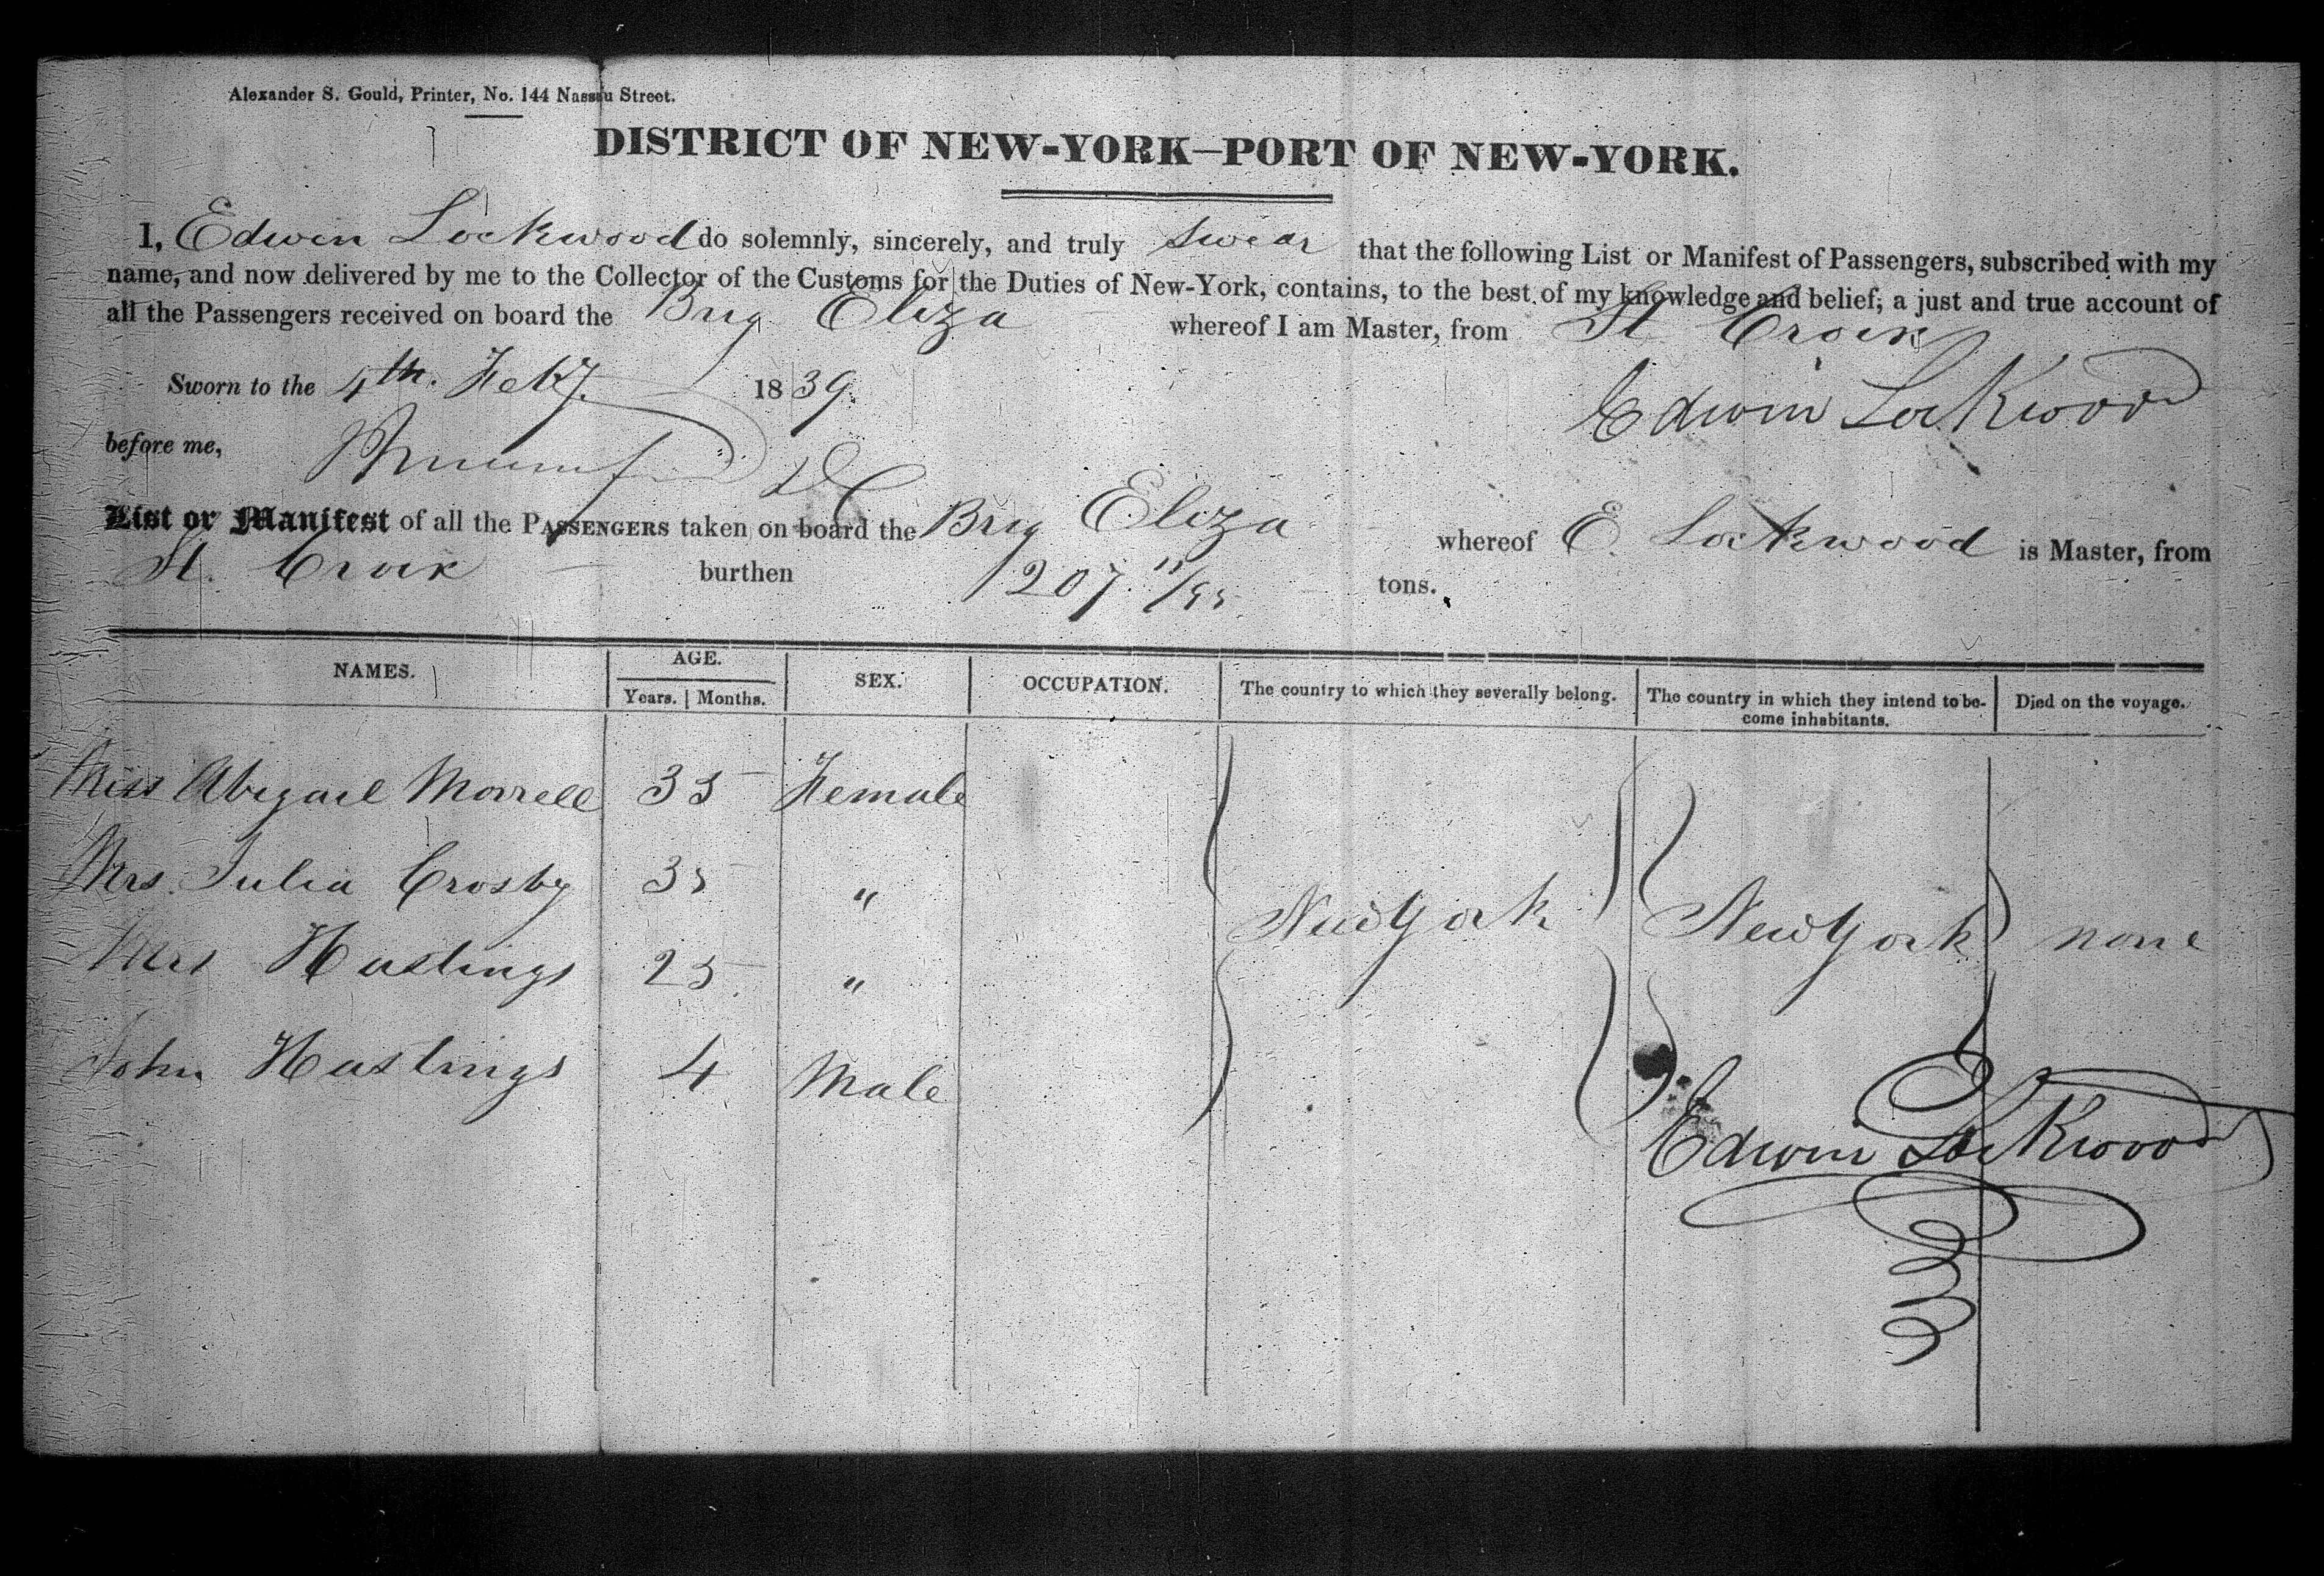 Alexander S. Gould, Printer, No. 144 Nassau Street.
DISTRICT OF NEW-YORK—PORT OF NEW-YORK.
I, Edwin Lockwood do solemnly, sincerely, and truly swear that the following List or Manifest of Passengers, subscribed with my
name, and now delivered by me to the Collector of the Customs for the Duties of New-York, contains, to the best of my knowledge and belief, a just and true account of
all the Passengers received on board the Brig Eliza whereof I am Master, from St Croix
Sworn to the 4th. Feby. 1839.
Edwin Lockwood
before me,
List or Manifest of all the PASSENGERS taken on board the Brig Eliza whereof E. Lockwood is Master, from
St. Croix burthen 207. 11/95 tons.
NAMES. AGE. SEX. OCCUPATION. The country to which they severally belong. The country in which they intend to be- Died on the voyage.
Years. Months. come inhabitants.
Miss Abigail Morrell 35 Female
Mrs. Julia Crosby 35 "
New York New York none
Mrs Hastings 25 "
John Hastings 4 Male
Edwin Lockwood